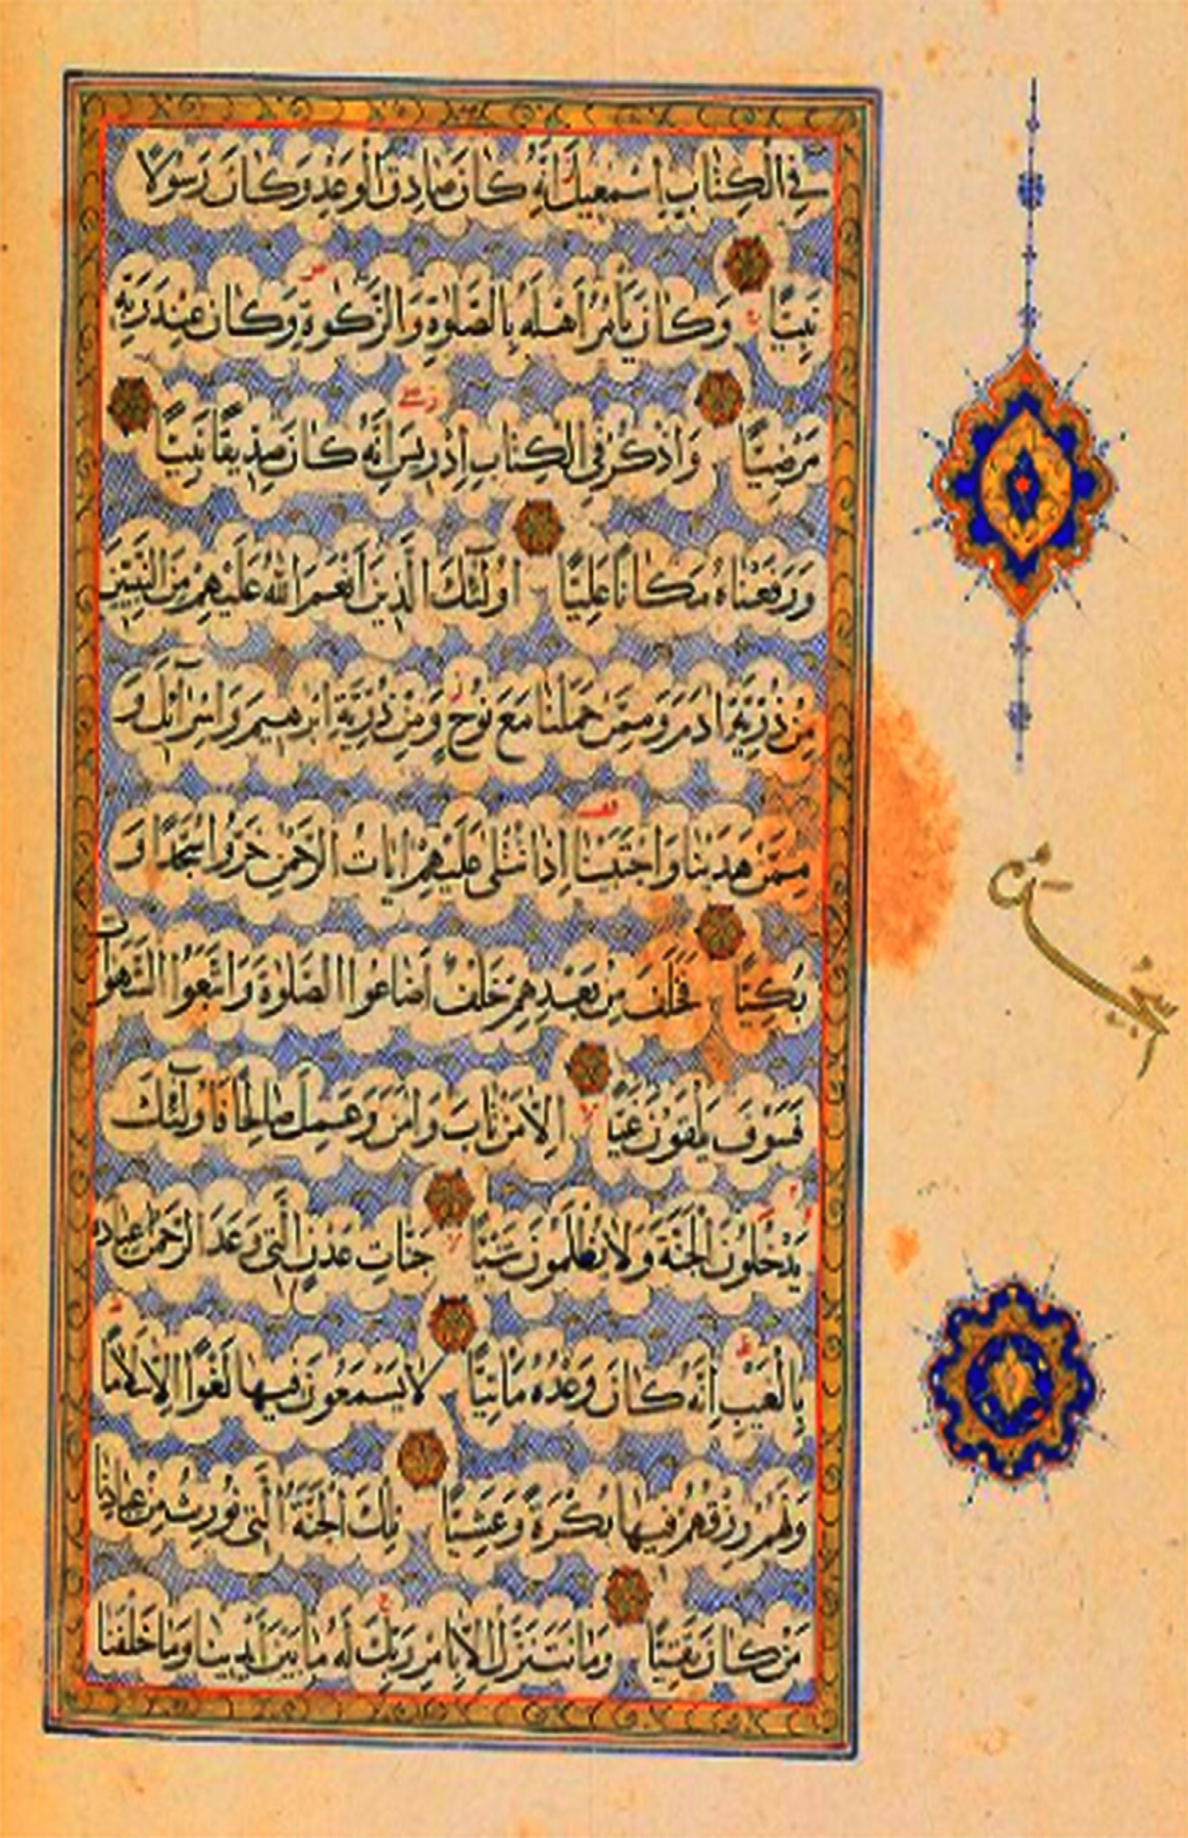 فِي الْكِتَابِ إِسْمٰعِيلَ إِنَّهُ كَانَ صَادِقَ الْوَعْدِ وَكَانَ رَسُولًا
نَبِيًّا وَكَانَ يَأْمُرُ أَهْلَهُ بِالصَّلٰوةِ وَالزَّكٰوةِ وَكَانَ عِنْدَ رَبِّهِ
مَرْضِيًّا وَاذْكُرْ فِي الْكِتَابِ إِدْرِيسَ إِنَّهُ كَانَ صِدِّيقًا نَبِيًّا
وَرَفَعْنَاهُ مَكَانًا عَلِيًّا أُولٰئِكَ الَّذِينَ أَنْعَمَ اللّٰهُ عَلَيْهِمْ مِنَ النَّبِيِّينَ
مِنْ ذُرِّيَّةِ اٰدَمَ وَمِمَّنْ حَمَلْنَا مَعَ نُوحٍ وَمِنْ ذُرِّيَّةِ إِبْرٰهِيمَ وَإِسْرَآئِلَ وَ
مِمَّنْ هَدَيْنَا وَاجْتَبَيْنَا إِذَا تُتْلٰى عَلَيْهِمْ اٰيَاتُ الرَّحْمٰنِ خَرُّوا سُجَّدًا وَ
بُكِيًّا فَخَلَفَ مِنْ بَعْدِهِمْ خَلْفٌ أَضَاعُوا الصَّلٰوةَ وَاتَّبَعُوا الشَّهَوَاتِ
فَسَوْفَ يَلْقَوْنَ غَيًّا إِلَّا مَنْ تَابَ وَاٰمَنَ وَعَمِلَ صَالِحًا فَأُولٰئِكَ
يَدْخُلُونَ الْجَنَّةَ وَلَا يُظْلَمُونَ شَيْئًا جَنَّاتِ عَدْنٍ الَّتِي وَعَدَ الرَّحْمٰنُ عِبَادَهُ
بِالْغَيْبِ إِنَّهُ كَانَ وَعْدُهُ مَأْتِيًّا لَا يَسْمَعُونَ فِيهَا لَغْوًا إِلَّا سَلَامًا
وَلَهُمْ رِزْقُهُمْ فِيهَا بُكْرَةً وَعَشِيًّا تِلْكَ الْجَنَّةُ الَّتِي نُورِثُ مِنْ عِبَادِنَا
مَنْ كَانَ تَقِيًّا وَمَا نَتَنَزَّلُ إِلَّا بِأَمْرِ رَبِّكَ لَهُ مَا بَيْنَ أَيْدِينَا وَمَا خَلْفَنَا